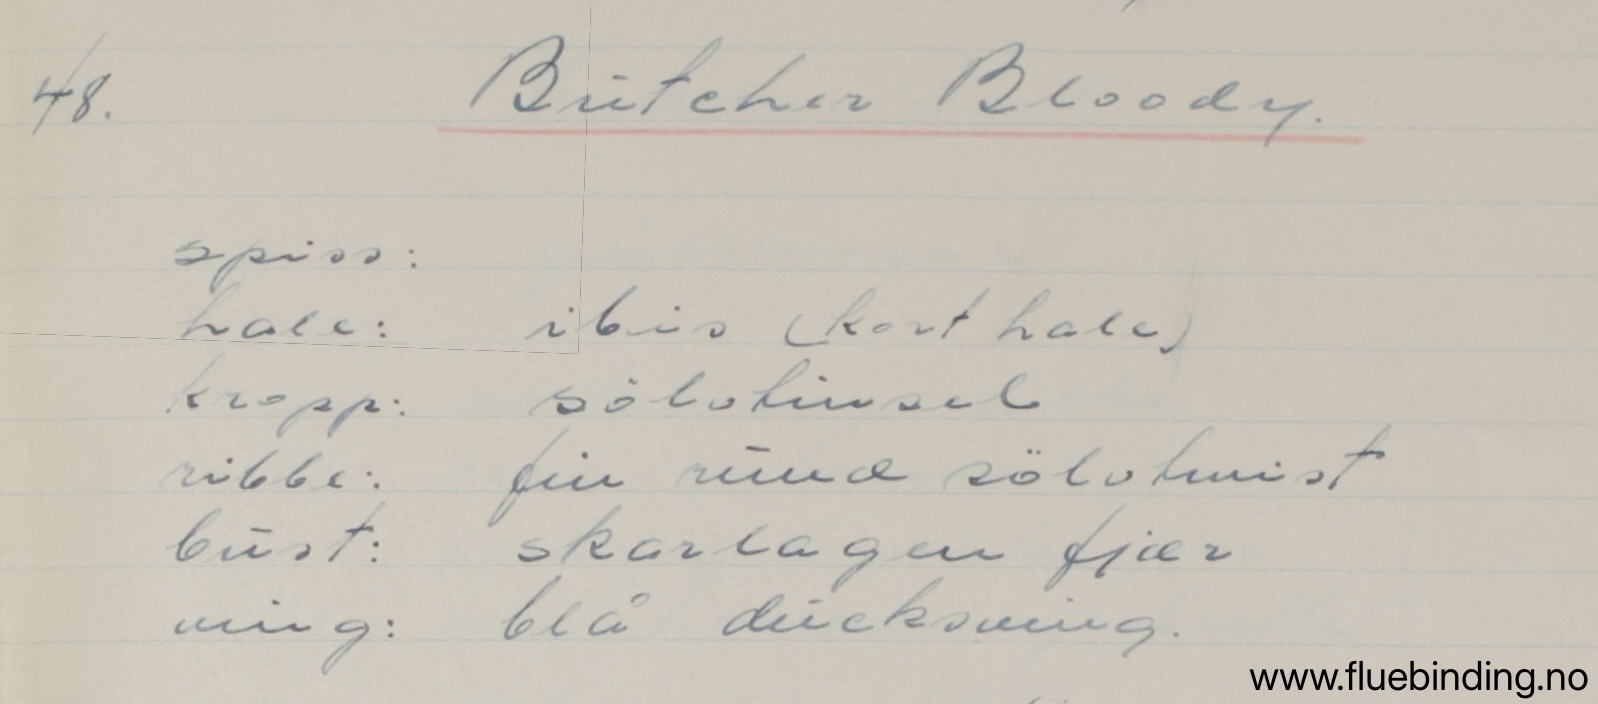 48. Butcher Bloody.
spiss:
hale: ibis (kort hale)
kropp: sölvtinsel
ribbe: fin rund sölvtwist
bust: skarlagen fjær
ving: blå duckswing.
www.fluebinding.no